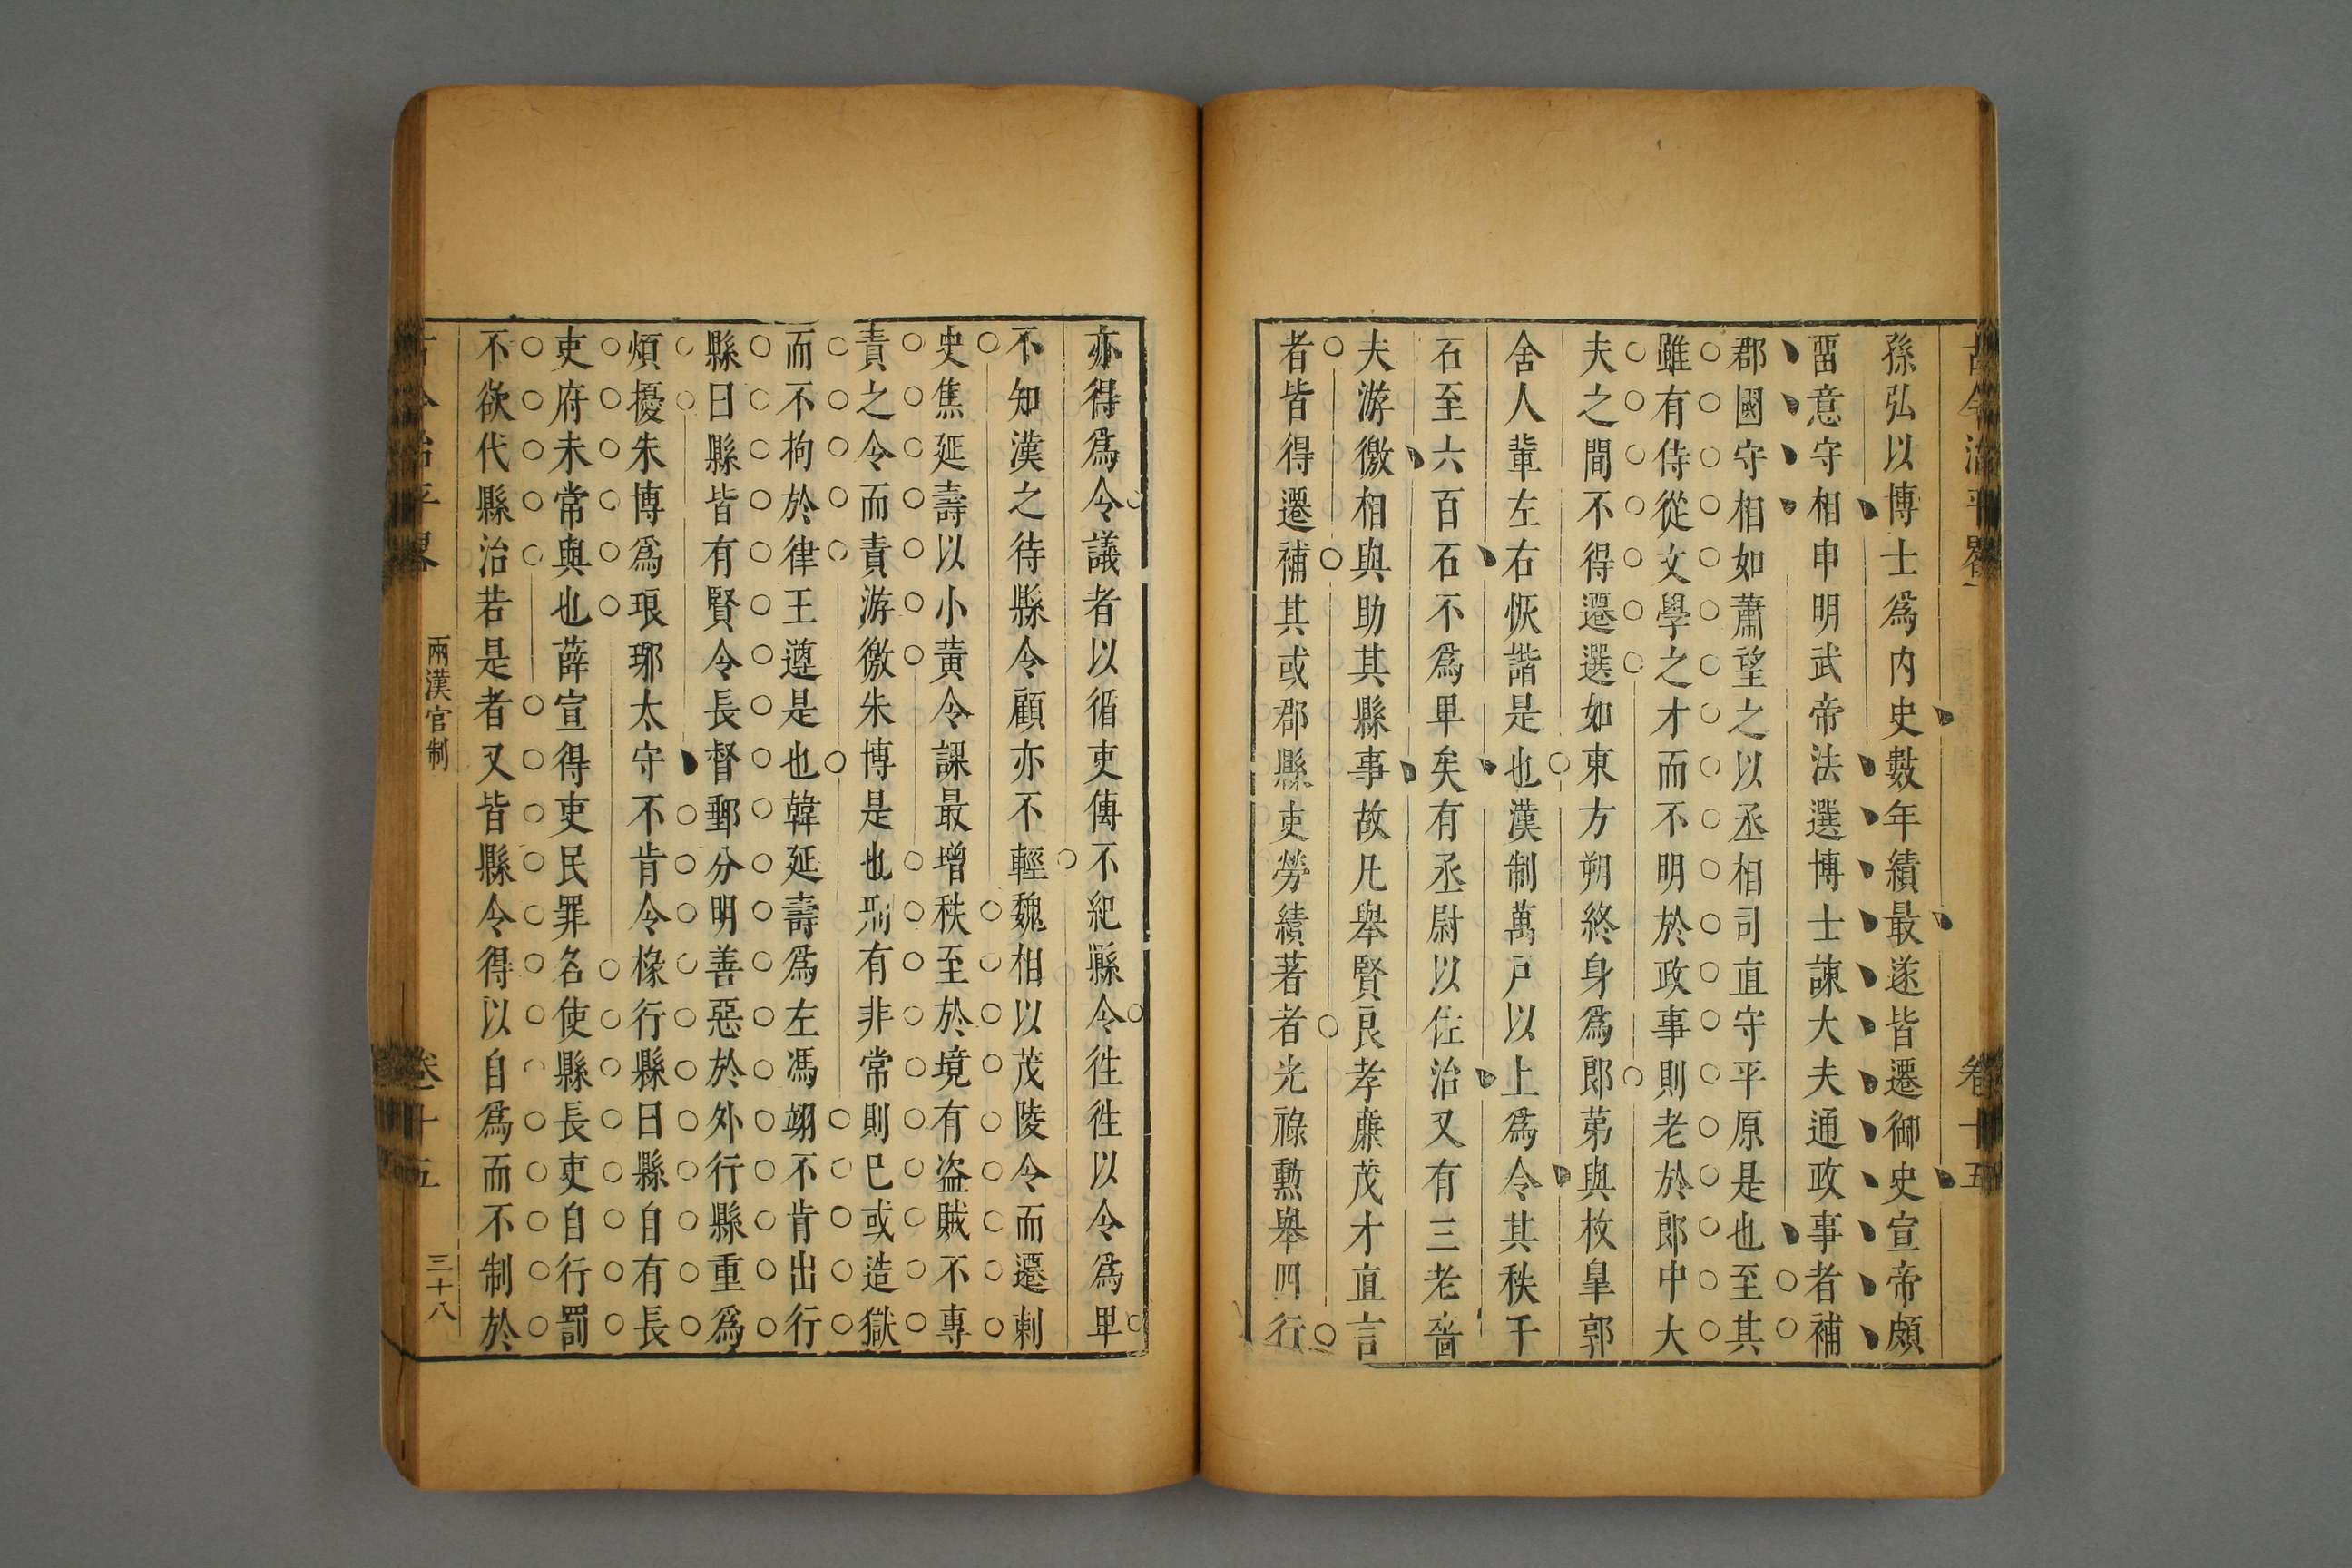 古今治平畧 卷十五
孫弘以博士爲内史數年績最遂皆遷御史宣帝頗
畱意守相申明武帝法選博士諫大夫通政事者補
郡國守相如蕭望之以丞相司直守平原是也至其
雖有侍從文學之才而不明於政事則老於郎中大
夫之間不得遷選如東方朔終身爲郎苐與枚皐郭
舍人輩左右恢諧是也漢制萬戸以上爲令其秩千
石至六百石不爲卑矣有丞尉以佐治又有三老嗇
夫游徼相與助其縣事故凡舉賢良孝廉茂才直言
者皆得遷補其或郡縣吏勞績著者光祿勲舉四行
亦得爲令議者以循吏傳不紀縣令徃徃以令爲卑
不知漢之待縣令顧亦不輕魏相以茂陵令而遷刺
史焦延壽以小黄令課最增秩至於境有盗賊不專
責之令而責游徼朱博是也刑有非常則已或造獄
而不拘於律王遵是也韓延壽爲左馮翊不肯出行
縣曰縣皆有賢令長督郵分明善惡於外行縣重爲
煩擾朱博爲琅琊太守不肯令椽行縣曰縣自有長
吏府未常與也薛宣得吏民罪名使縣長吏自行罰
不欲代縣治若是者又皆縣令得以自爲而不制於
古今治平畧 兩漢官制 卷十五 三十八